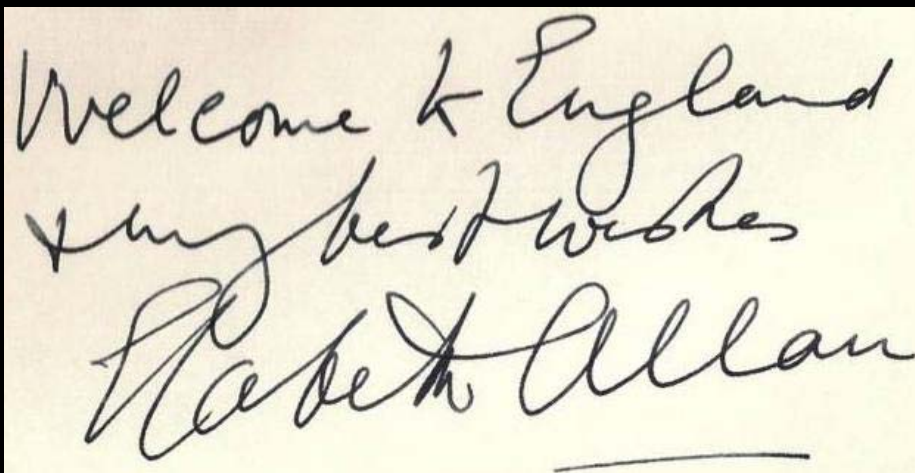 Welcome to England
& my best wishes
Elizabeth Allan